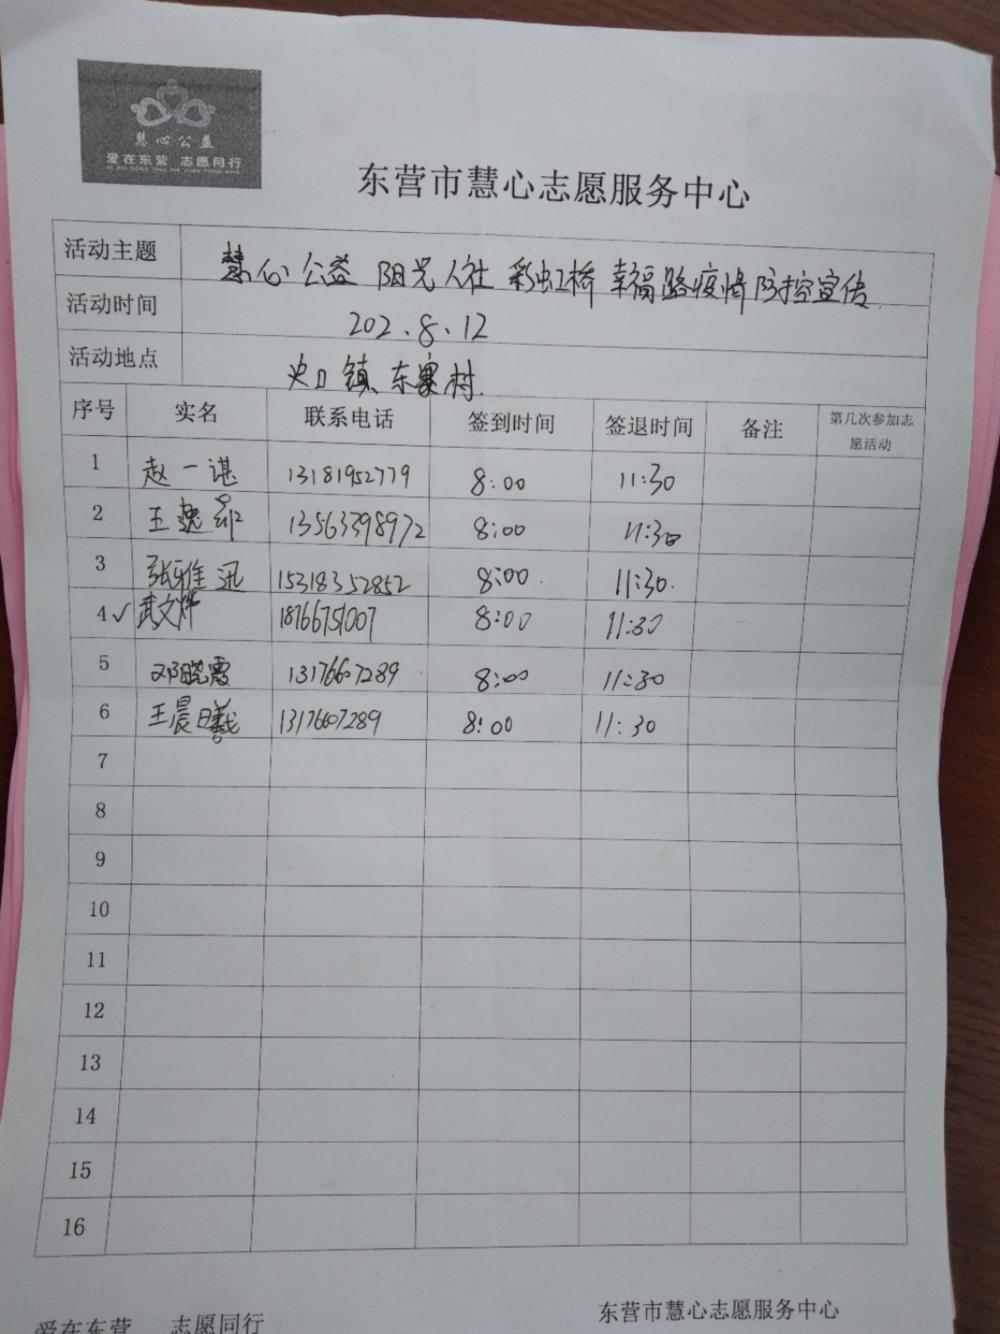 慧心公益
爱在东营 志愿同行
东营市慧心志愿服务中心
活动主题 慧心公益 阳光人社 彩虹桥 幸福路疫情防控宣传
活动时间 202.8.12
活动地点 史口镇东寨村
序号 实名 联系电话 签到时间 签退时间 备注 第几次参加志愿活动
1 赵一谌 13181952779 8:00 11:30
2 王逸 13563398972 8:00 11:30
3 张雅迅 15318352852 8:00 11:30
4 ✓ 武文烨 18766751007 8:00 11:30
5 邓晓霞 13176607289 8:00 11:30
6 王晨曦 13176607289 8:00 11:30
7
8
9
10
11
12
13
14
15
16
爱在东营 志愿同行 东营市慧心志愿服务中心